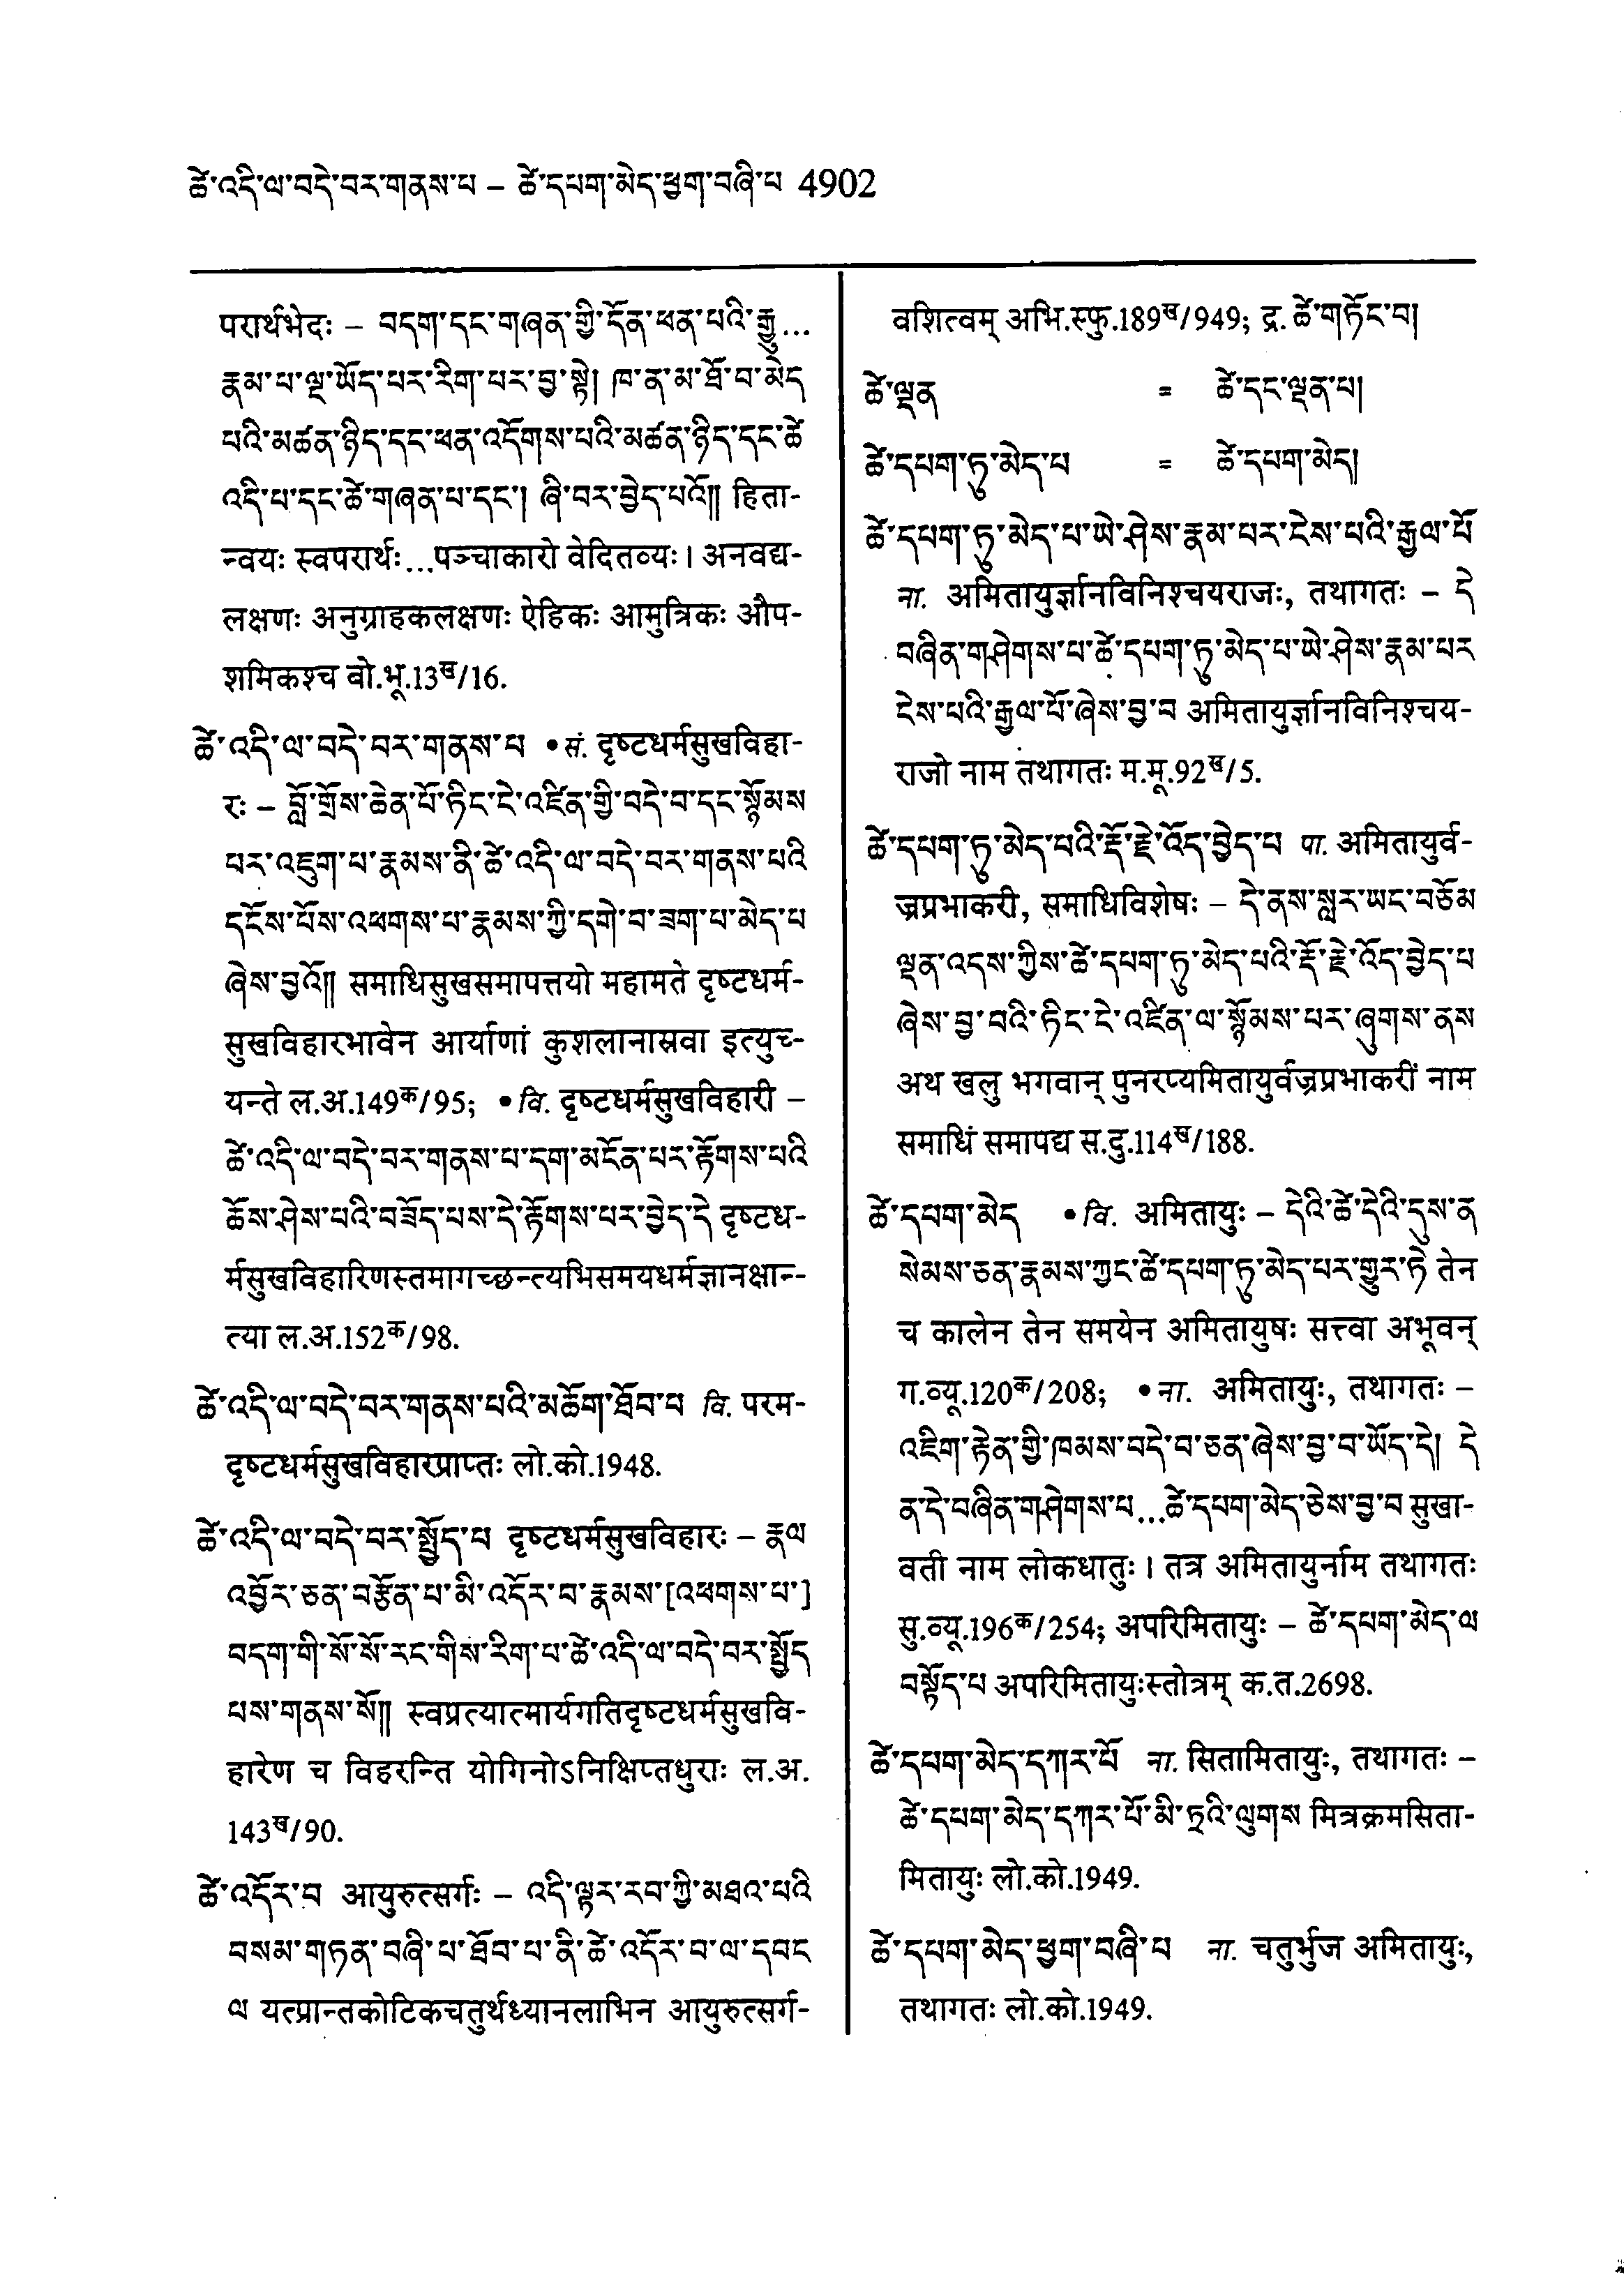 ཚེ་འདི་ལ་བདེ་བར་གནས་པ – ཚེ་དཔག་མེད་ཕྱག་བཞི་པ 4902
परार्थभेदः – བདག་དང་གཞན་གྱི་དོན་ཕན་པའི་རྒྱུ...
རྣམ་པ་ལྔ་ཡོད་པར་རིག་པར་བྱ་སྟེ། ཁ་ན་མ་ཐོ་བ་མེད
པའི་མཚན་ཉིད་དང་ཕན་འདོགས་པའི་མཚན་ཉིད་དང་ཚེ
འདི་པ་དང་ཚེ་གཞན་པ་དང་། ཞི་བར་བྱེད་པའོ།། हिता-
न्वयः स्वपरार्थः...पञ्चाकारो वेदितव्यः। अनवद्य-
लक्षणः अनुग्राहकलक्षणः ऐहिकः आमुत्रिकः औप-
शमिकश्च बो.भू.13ख/16.
ཚེ་འདི་ལ་བདེ་བར་གནས་པ • सं. दृष्टधर्मसुखविहा-
रः – བློ་གྲོས་ཆེན་པོ་ཏིང་ངེ་འཛིན་གྱི་བདེ་བ་དང་སྙོམས
པར་འཇུག་པ་རྣམས་ནི་ཚེ་འདི་ལ་བདེ་བར་གནས་པའི
དངོས་པོས་འཕགས་པ་རྣམས་ཀྱི་དགེ་བ་ཟག་པ་མེད་པ
ཞེས་བྱའོ།། समाधिसुखसमापत्तयो महामते दृष्टधर्म-
सुखविहारभावेन आर्याणां कुशलानास्रवा इत्युच्-
यन्ते ल.अ.149क/95; • वि. दृष्टधर्मसुखविहारी –
ཚེ་འདི་ལ་བདེ་བར་གནས་པ་དག་མངོན་པར་རྟོགས་པའི
ཆོས་ཤེས་པའི་བཟོད་པས་དེ་རྟོགས་པར་བྱེད་དེ दृष्टध-
र्मसुखविहारिणस्तमागच्छन्त्यभिसमयधर्मज्ञानक्षान्-
त्या ल.अ.152क/98.
ཚེ་འདི་ལ་བདེ་བར་གནས་པའི་མཆོག་ཐོབ་པ वि. परम-
दृष्टधर्मसुखविहारप्राप्तः लो.को.1948.
ཚེ་འདི་ལ་བདེ་བར་སྤྱོད་པ दृष्टधर्मसुखविहारः – རྣལ
འབྱོར་ཅན་བརྩོན་པ་མི་འདོར་བ་རྣམས་[འཕགས་པ་]
བདག་གི་སོ་སོ་རང་གིས་རིག་པ་ཚེ་འདི་ལ་བདེ་བར་སྤྱོད
པས་གནས་སོ།། स्वप्रत्यात्मार्यगतिदृष्टधर्मसुखवि-
हारेण च विहरन्ति योगिनोऽनिक्षिप्तधुराः ल.अ.
143ख/90.
ཚེ་འདོར་བ आयुरुत्सर्गः – འདི་ལྟར་རབ་ཀྱི་མཐའ་པའི
བསམ་གཏན་བཞི་པ་ཐོབ་པ་ནི་ཚེ་འདོར་བ་ལ་དབང
ལ यत्प्रान्तकोटिकचतुर्थध्यानलाभिन आयुरुत्सर्ग-
वशित्वम् अभि.स्फु.189ख/949; द्र. ཚེ་གཏོང་བ།
ཚེ་ལྡན = ཚེ་དང་ལྡན་པ།
ཚེ་དཔག་ཏུ་མེད་པ = ཚེ་དཔག་མེད།
ཚེ་དཔག་ཏུ་མེད་པ་ཡེ་ཤེས་རྣམ་པར་ངེས་པའི་རྒྱལ་པོ
ना. अमितायुर्ज्ञानविनिश्चयराजः, तथागतः – དེ
བཞིན་གཤེགས་པ་ཚེ་དཔག་ཏུ་མེད་པ་ཡེ་ཤེས་རྣམ་པར
ངེས་པའི་རྒྱལ་པོ་ཞེས་བྱ་བ अमितायुर्ज्ञानविनिश्चय-
राजो नाम तथागतः म.मू.92ख/5.
ཚེ་དཔག་ཏུ་མེད་པའི་རྡོ་རྗེ་འོད་བྱེད་པ पा. अमितायुर्व-
ज्रप्रभाकरी, समाधिविशेषः – དེ་ནས་སླར་ཡང་བཅོམ
ལྡན་འདས་ཀྱིས་ཚེ་དཔག་ཏུ་མེད་པའི་རྡོ་རྗེ་འོད་བྱེད་པ
ཞེས་བྱ་བའི་ཏིང་ངེ་འཛིན་ལ་སྙོམས་པར་ཞུགས་ནས
अथ खलु भगवान् पुनरप्यमितायुर्वज्रप्रभाकरीं नाम
समाधिं समापद्य स.दु.114ख/188.
ཚེ་དཔག་མེད • वि. अमितायुः – དེའི་ཚེ་དེའི་དུས་ན
སེམས་ཅན་རྣམས་ཀྱང་ཚེ་དཔག་ཏུ་མེད་པར་གྱུར་ཏེ तेन
च कालेन तेन समयेन अमितायुषः सत्त्वा अभूवन्
ग.व्यू.120क/208; • ना. अमितायुः, तथागतः –
འཇིག་རྟེན་གྱི་ཁམས་བདེ་བ་ཅན་ཞེས་བྱ་བ་ཡོད་དེ། དེ
ན་དེ་བཞིན་གཤེགས་པ...ཚེ་དཔག་མེད་ཅེས་བྱ་བ सुखा-
वती नाम लोकधातुः। तत्र अमितायुर्नाम तथागतः
सु.व्यू.196क/254; अपरिमितायुः – ཚེ་དཔག་མེད་ལ
བསྟོད་པ अपरिमितायुःस्तोत्रम् क.त.2698.
ཚེ་དཔག་མེད་དཀར་པོ ना. सितामितायुः, तथागतः –
ཚེ་དཔག་མེད་དཀར་པོ་མི་ཏྲའི་ལུགས मित्रक्रमसिता-
मितायुः लो.को.1949.
ཚེ་དཔག་མེད་ཕྱག་བཞི་པ ना. चतुर्भुज अमितायुः,
तथागतः लो.को.1949.